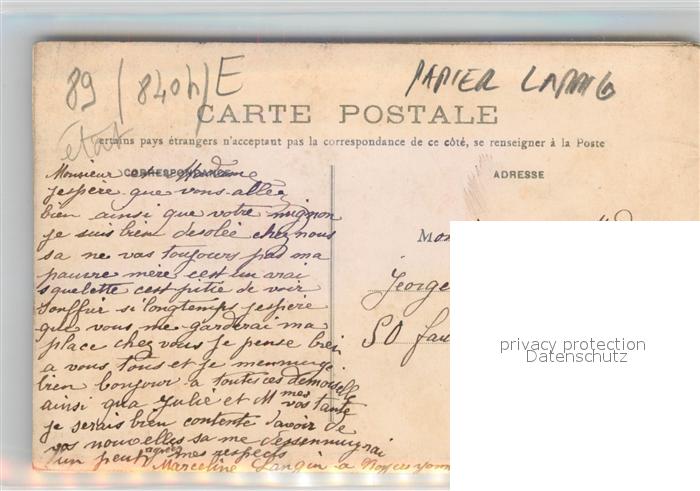 89 (8404) E
PAPIER
état
CARTE POSTALE
ertains pays étrangers n'acceptant pas la correspondance de ce côté, se renseigner à la Poste
CORRESPONDANCE
ADRESSE
Monsieur Madame
jespère que vous allez
bien ainsi que votre mignon
je suis bien desolée chez nous
sa ne vas toujours pas ma
pauvre mère cest un vrai
squelette cest pitié de voir
souffrir si longtemps jespère
que vous me garderai ma
place chez vous je pense bien
a vous tous et je mennuye
bien bonjour a toutes ces demoiselle
ainsi qua Julie et M mes
vos tante
je serais bien contente davoir de
vos nouvelles sa me dessennuyrai
un peut agréez mes respects
Marceline Langin a
Mon
George
50 fau
privacy protection
Datenschutz